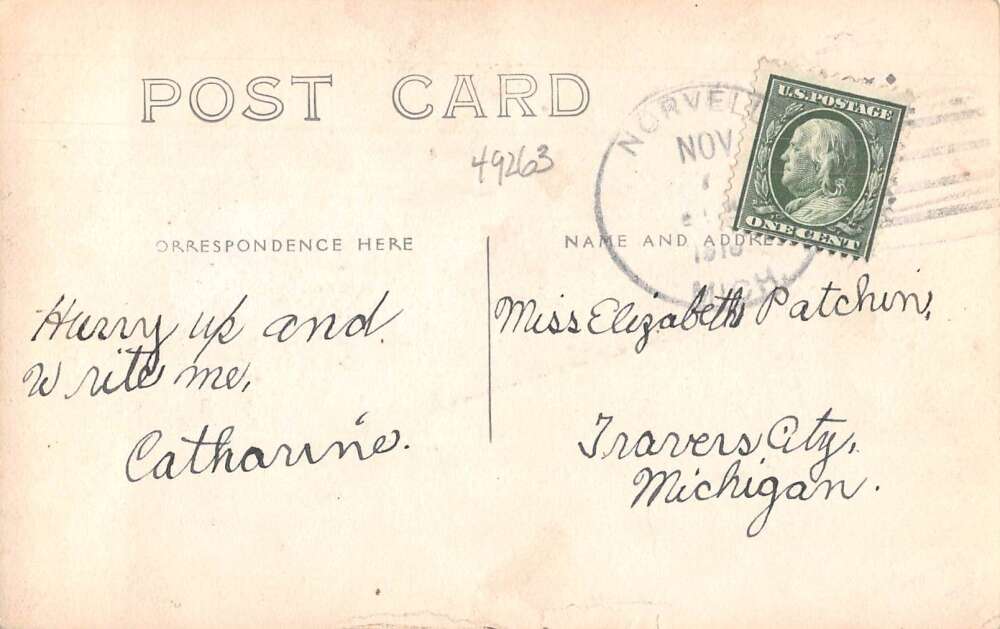 POST CARD
49263
NORVELL
NOV
1
1910
MICH.
U.S. POSTAGE
ONE CENT
ORRESPONDENCE HERE
NAME AND ADDRE
Hurry up and
Write me,
Catharine.
Miss Elizabeth Patchin,
Travers City,
Michigan.